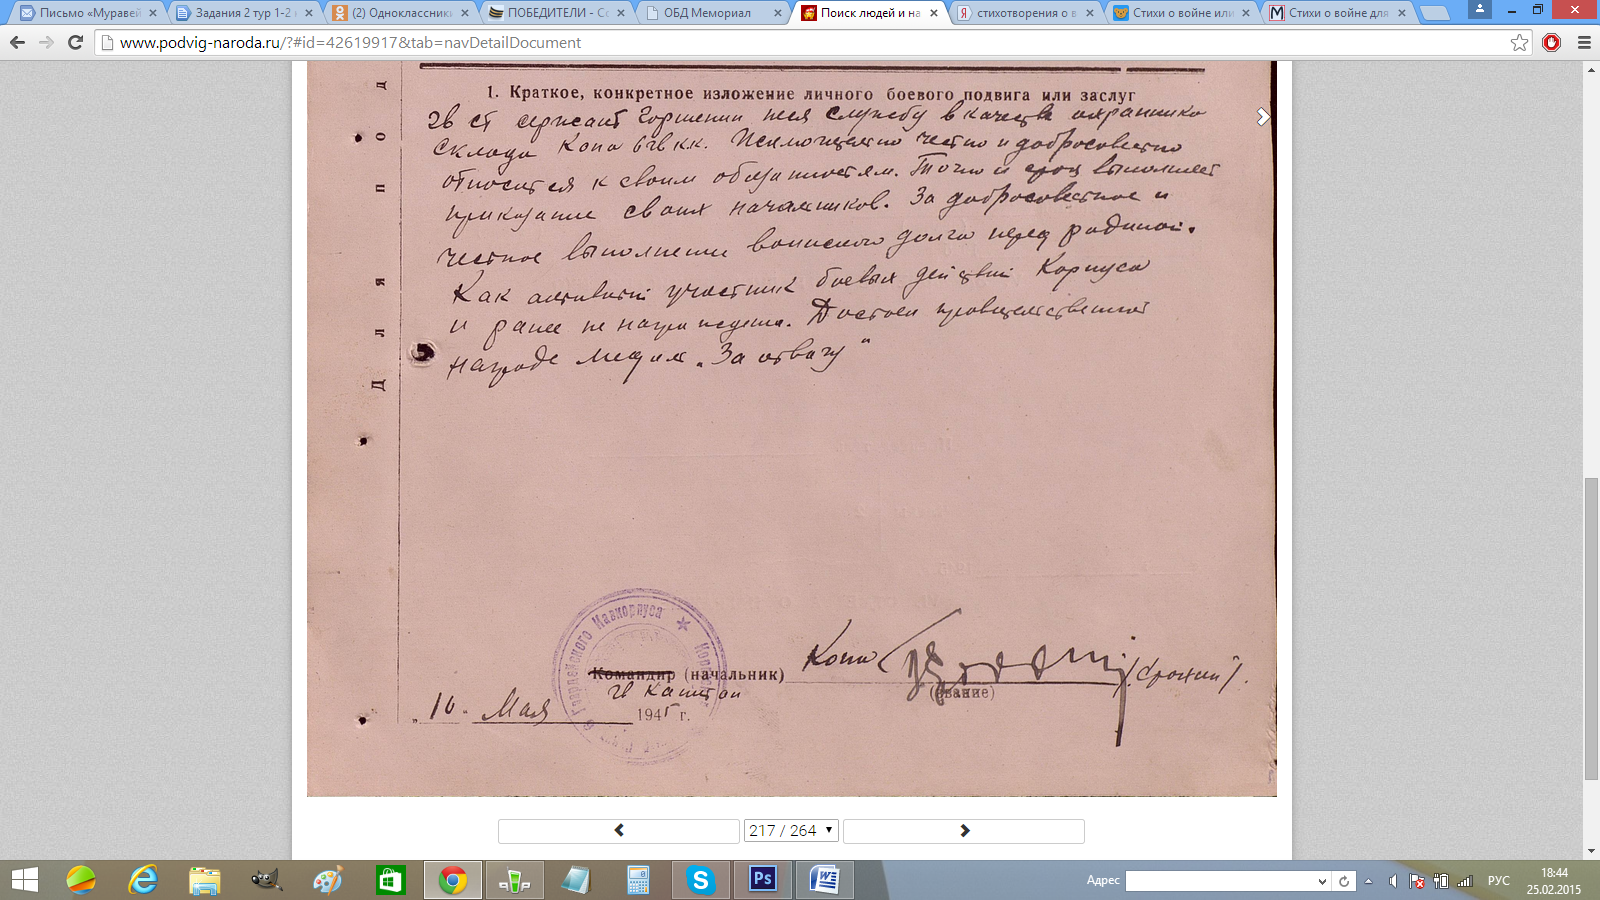 Письмо «Муравей
Задания 2 тур 1-2 к
(2) Одноклассники
ПОБЕДИТЕЛИ - Со
ОБД Мемориал
Поиск людей и на
стихотворения о в
Стихи о войне или
Стихи о войне для
www.podvig-naroda.ru/?#id=42619917&tab=navDetailDocument
Для под
1. Краткое, конкретное изложение личного боевого подвига или заслуг
Гв ст сержант Горшенин неся службу в качестве охранника
склада Копо 6 гв кк. Исключительно честно и добросовестно
относится к своим обязанностям. Точно и срок выполняет
приказание своих начальников. За добросовестное и
честное выполнении воинского долга перед родиной.
Как активный участник боевых действий Корпуса
и ранее не награждения. Достоен правительственной
награде Медали „За отвагу"
Гвардейского Кавкорпуса
Командир (начальник)
гв капитан
(звание)
„10" Мая 1945 г.
217 / 264
Адрес
РУС
18:44
25.02.2015